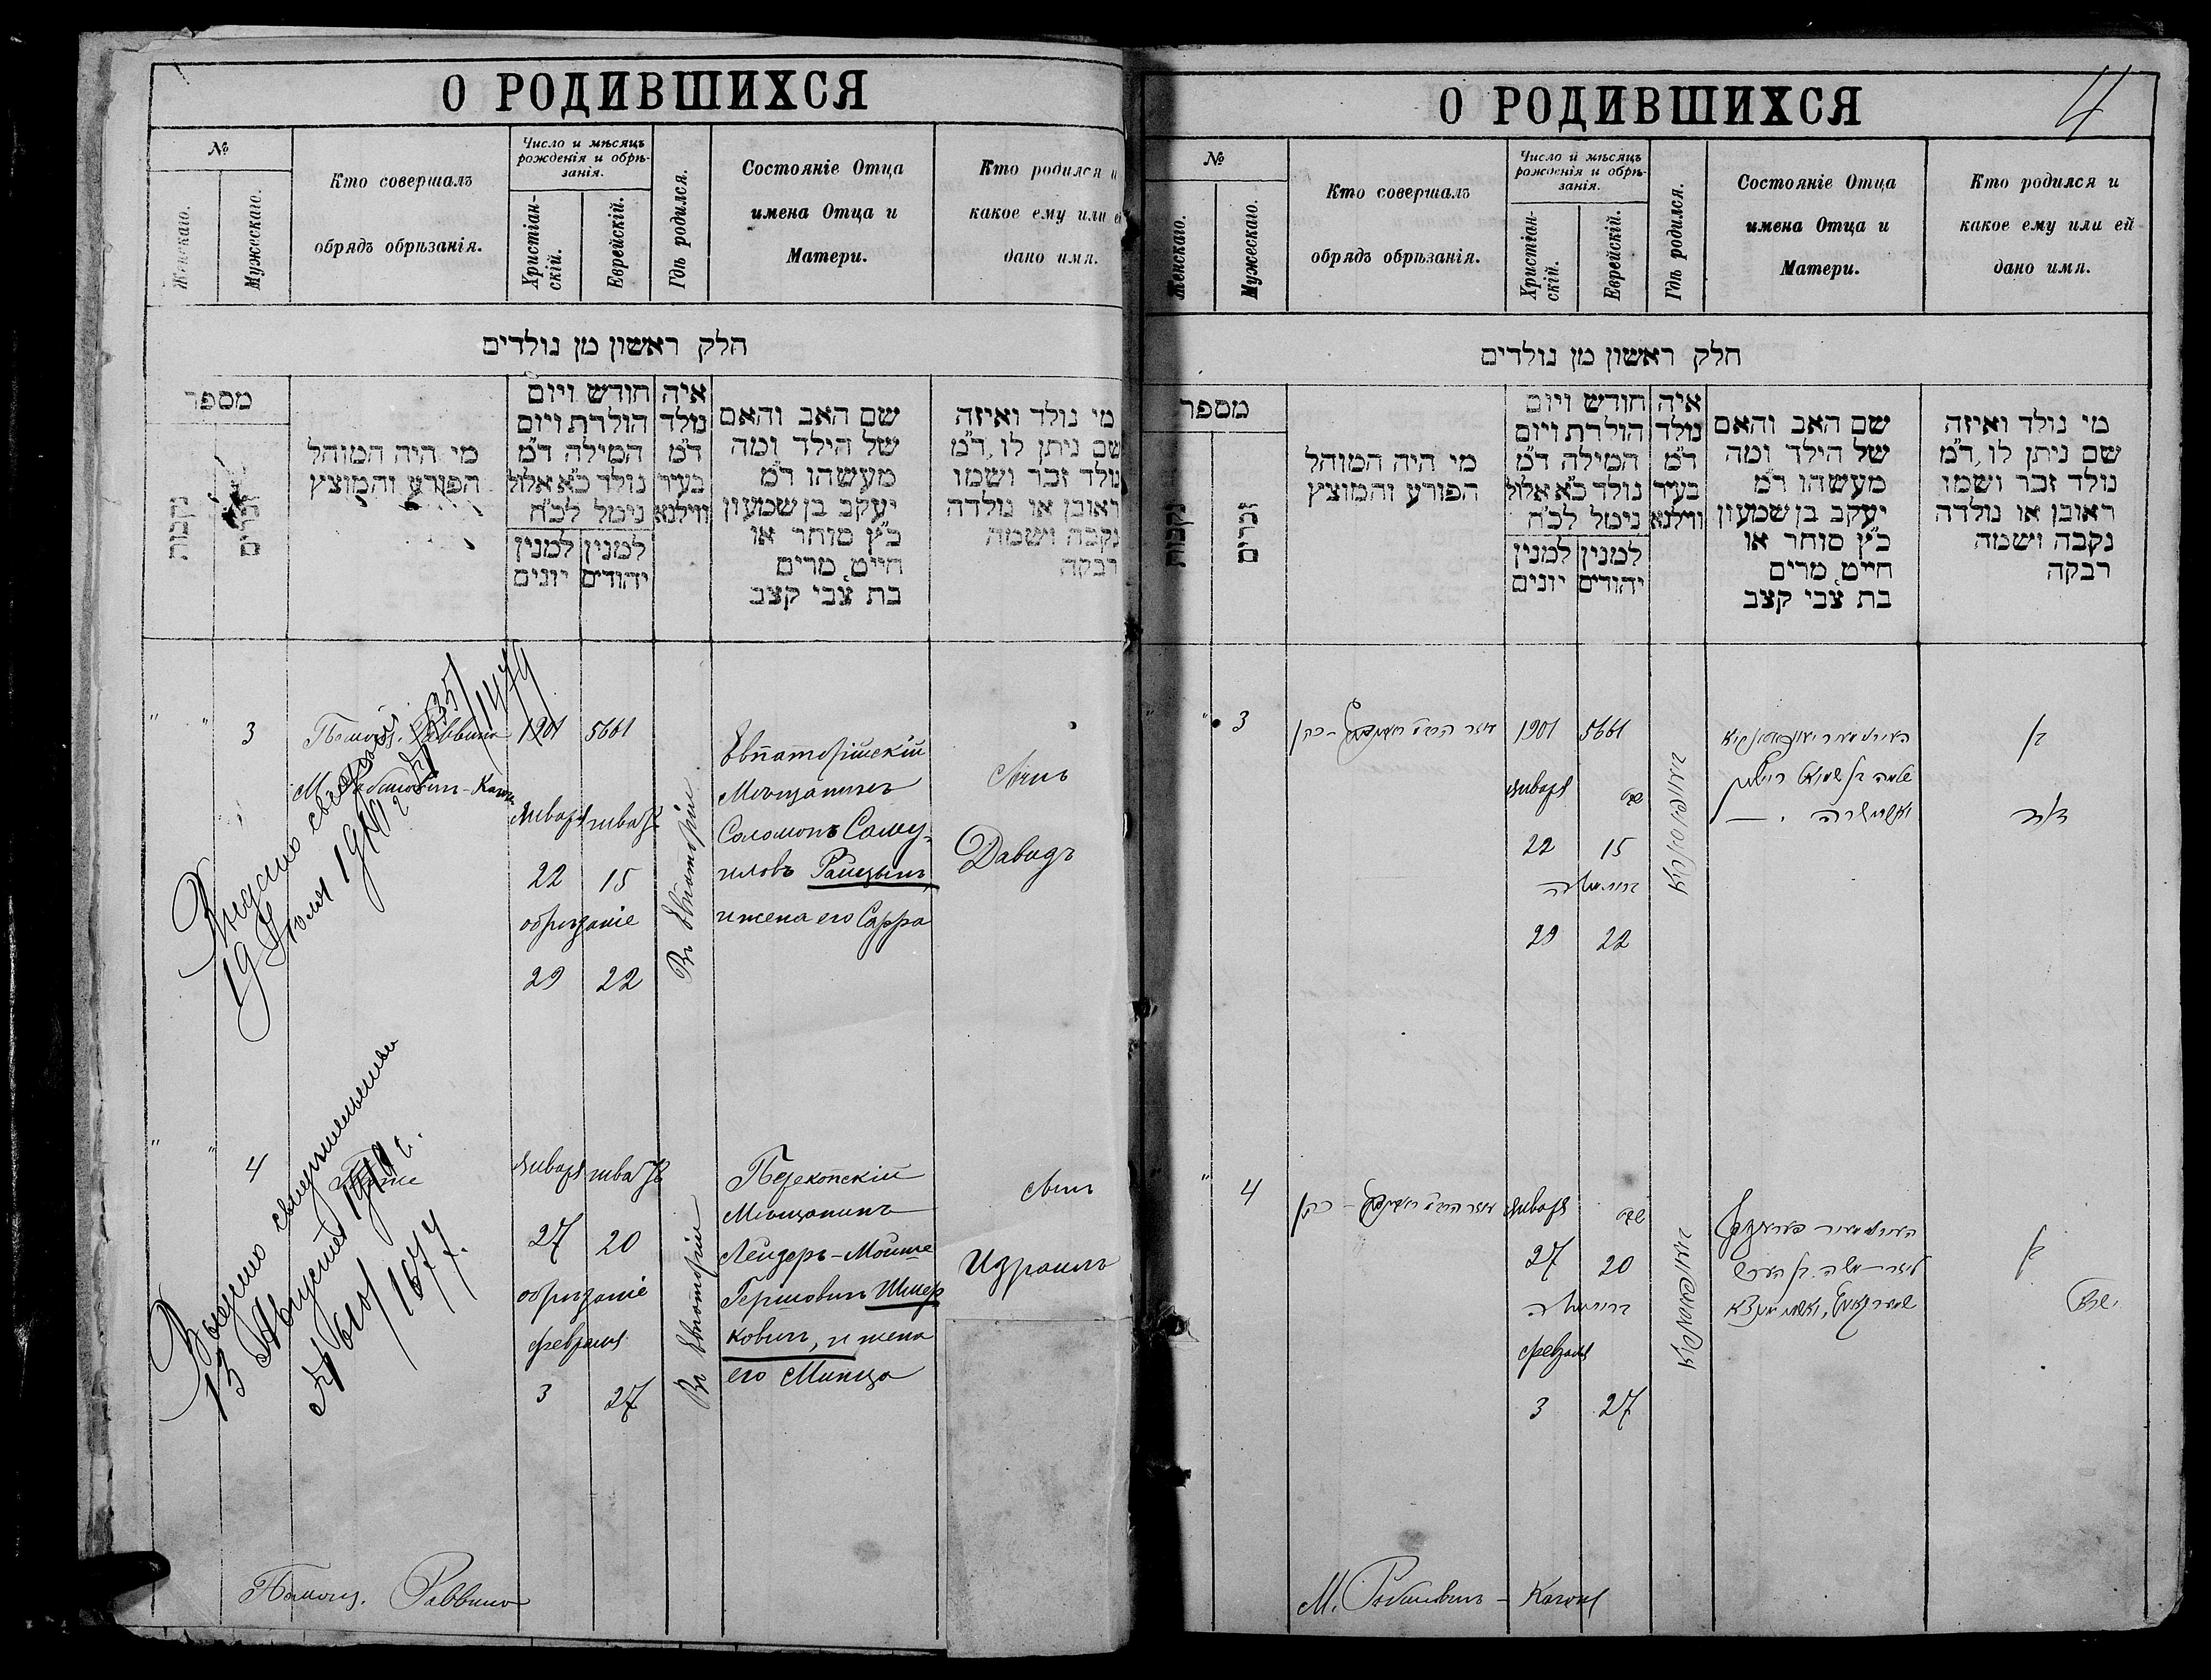 О РОДИВШИХСЯ
№
Женскаго.
Мужескаго.
Кто совершалъ
обрядъ обрѣзанія.
Число и мѣсяцъ
рожденія и обрѣ-
занія.
Христіан-
скій.
Еврейскій.
Гдѣ родился.
Состояніе Отца
имена Отца и
Матери.
Кто родился и
какое ему или ей
дано имя.
חלק ראשון מן נולדים
מספר
נקבות
זכרים
מי היה המוהל
הפורע והמוצץ
חודש ויום
הולדת ויום
המילה ד"מ
נולד כ"א אלול
נימל לכ"ח
למנין יהודים
למנין יונים
איה
נולד
ד"מ
בעיר
ווילנא
שם האב והאם
של הילד ומה
מעשהו ד"מ
יעקב בן שמעון
כ"ץ סוחר או
חייט, מרים
בת צבי קצב
מי נולד ואיזה
שם ניתן לו, ד"מ
נולד זכר ושמו
ראובן או נולדה
נקבה ושמה
רבקה
3
Помощ. Раввина
1901 5661
Январь
22 15
обрѣзаніе
29 22
Въ Евпаторіи
Евпаторійскій
Мѣщанинъ
Соломонъ Саму-
иловъ
и жена его Сарра
Сынъ
Давидъ
Выдано
19 Іюля
1479
4
Январь
27 20
обрѣзаніе
февраля
3 27
Въ Евпаторіи
Перекопскій
Мѣщанинъ
Лейзеръ-Мойше
Гершовичъ Шмер
ковичъ, и жена
его Минца
сынъ
Израиль
Выдано свидѣтельство
13 Августа
1677
Помощ. Раввина
О РОДИВШИХСЯ
4
№
Женскаго.
Мужескаго.
Кто совершалъ
обрядъ обрѣзанія.
Число и мѣсяцъ
рожденія и обрѣ-
занія.
Христіан-
скій.
Еврейскій.
Гдѣ родился.
Состояніе Отца
имена Отца и
Матери.
Кто родился и
какое ему или ей
дано имя.
חלק ראשון מן נולדים
מספר
נקבות
זכרים
מי היה המוהל
הפורע והמוצץ
חודש ויום
הולדת ויום
המילה ד"מ
נולד כ"א אלול
נימל לכ"ח
למנין יהודים
למנין יונים
איה
נולד
ד"מ
בעיר
ווילנא
שם האב והאם
של הילד ומה
מעשהו ד"מ
יעקב בן שמעון
כ"ץ סוחר או
חייט, מרים
בת צבי קצב
מי נולד ואיזה
שם ניתן לו, ד"מ
נולד זכר ושמו
ראובן או נולדה
נקבה ושמה
רבקה
3
1901 5661
Январь שבט
22 15
29 22
שלמה בן שמואל
בן
דוד
4
Январь שבט
27 20
февраля
3 27
בן
ישראל
М. Рабиновичъ - Каганъ